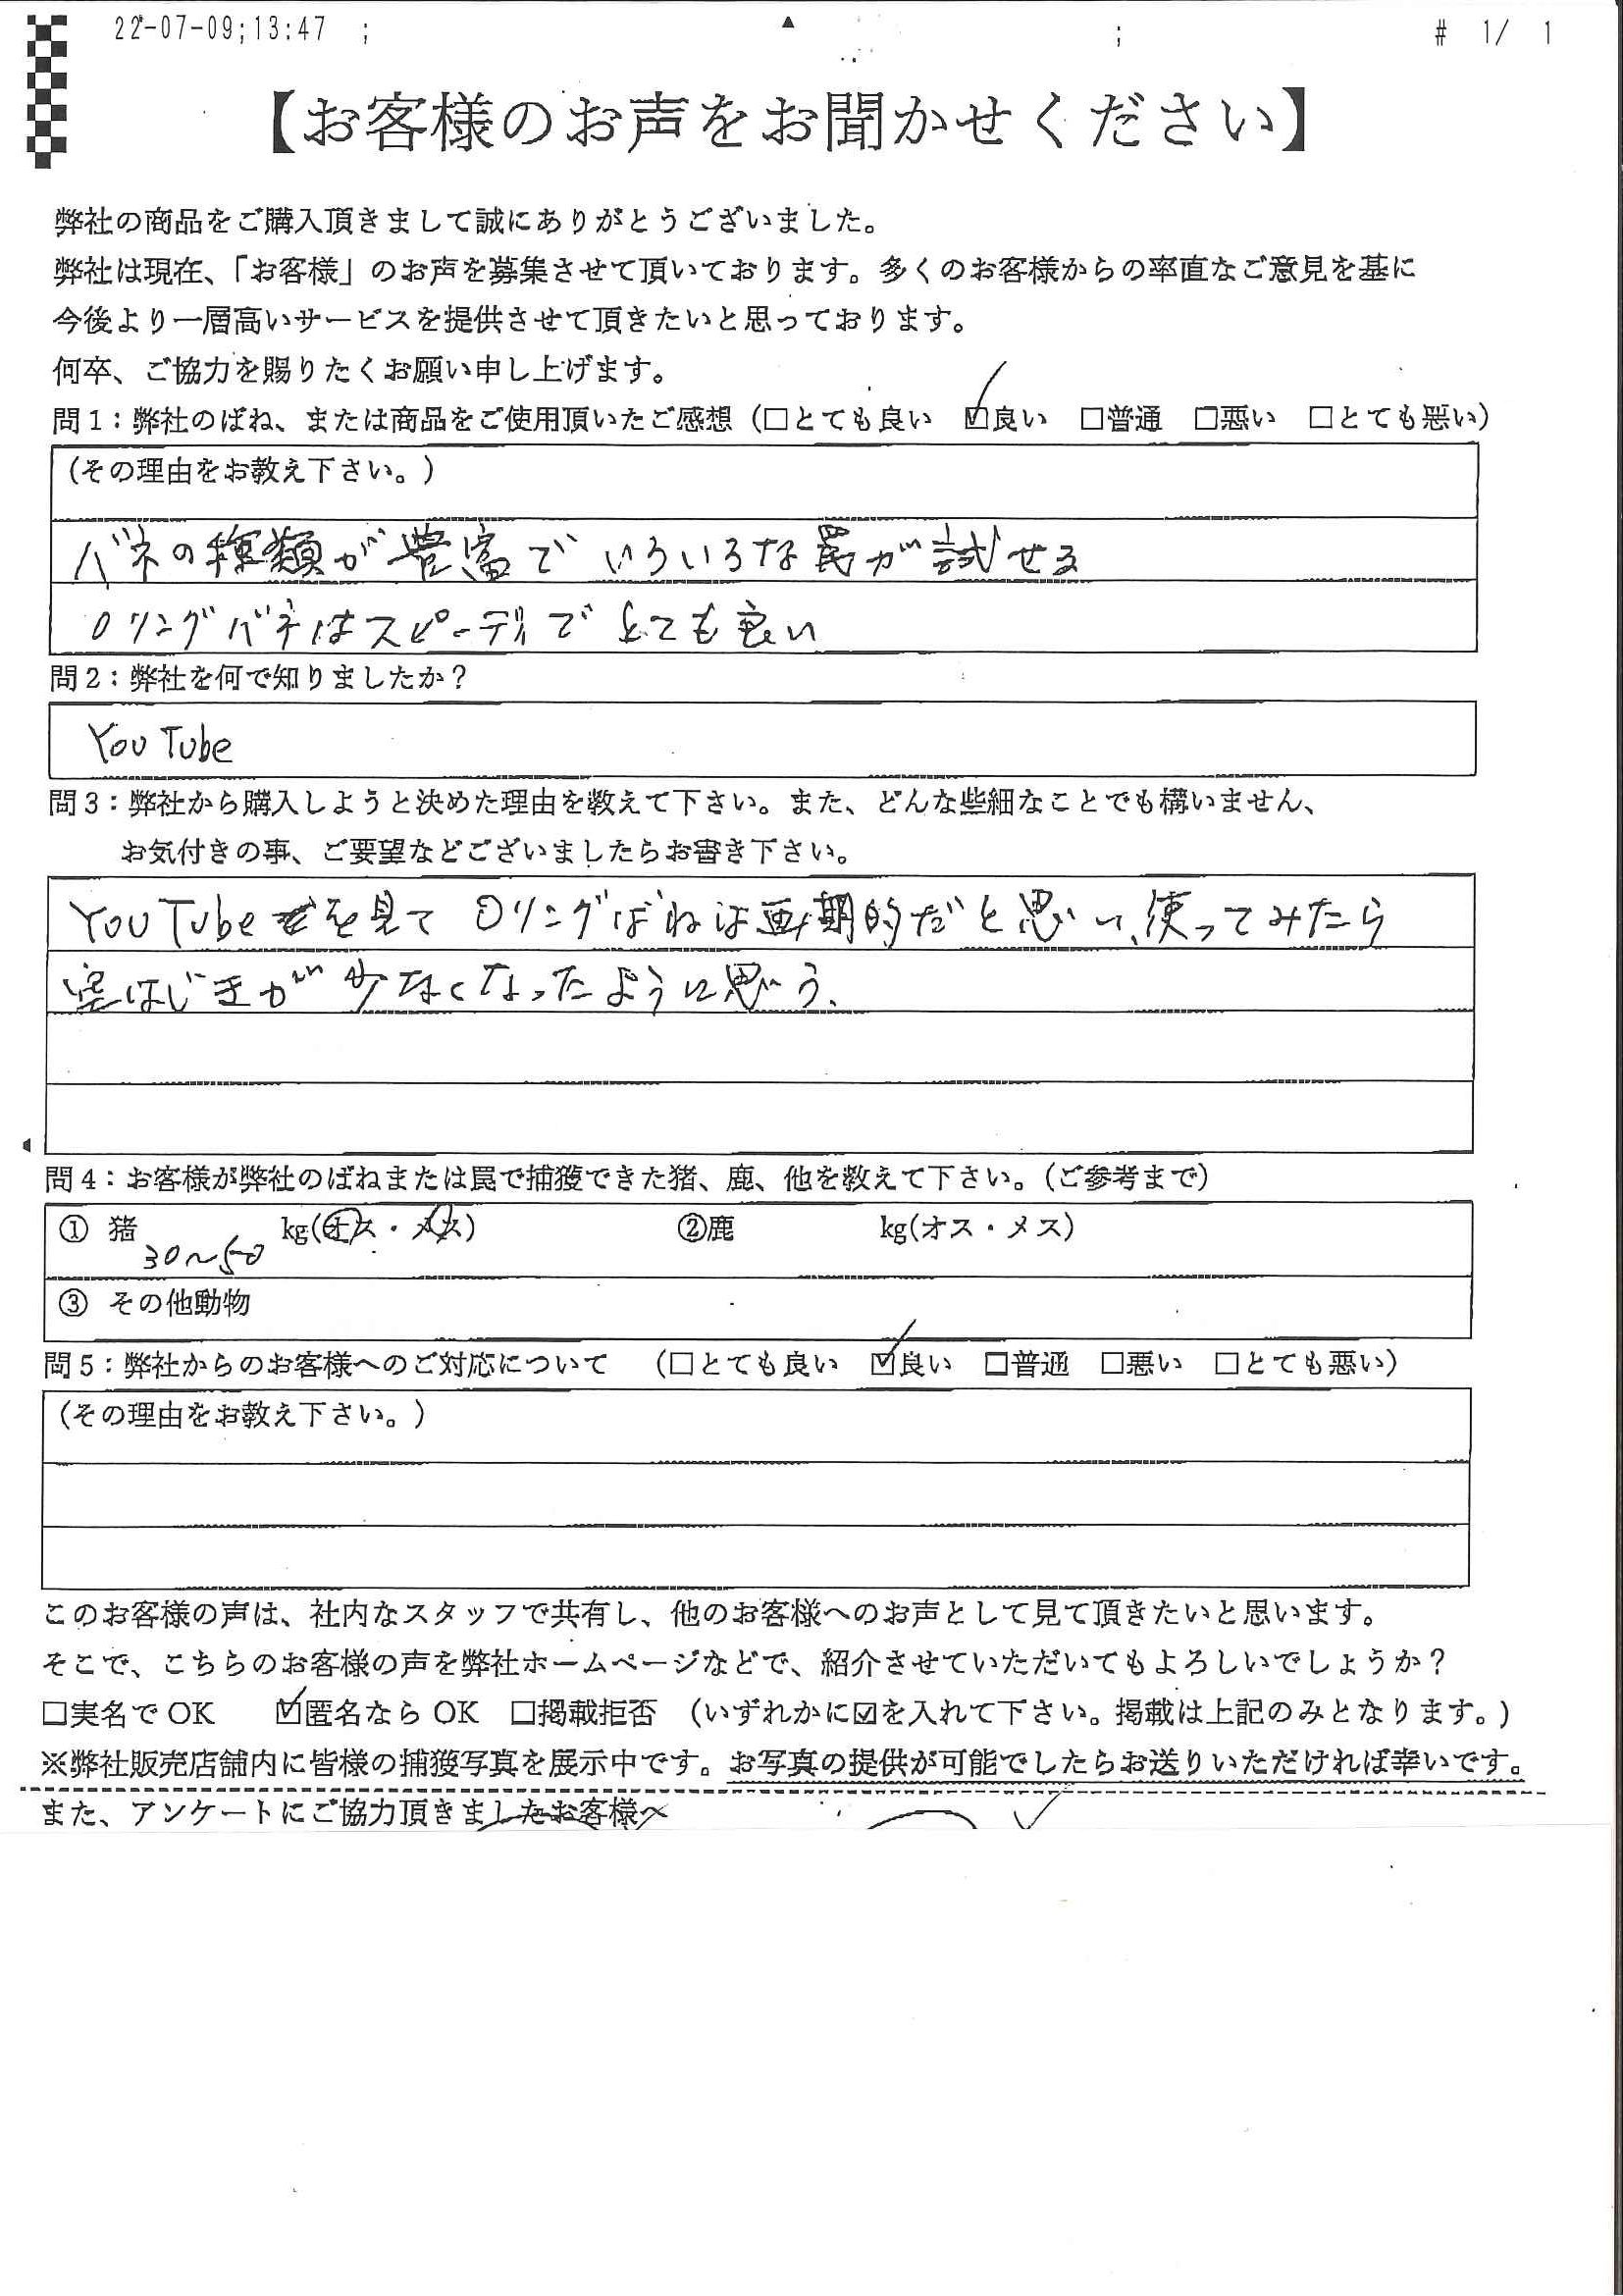 22-07-09;13:47 ; ; # 1/ 1
【お客様のお声をお聞かせください】
弊社の商品をご購入頂きまして誠にありがとうございました。
弊社は現在、「お客様」のお声を募集させて頂いております。多くのお客様からの率直なご意見を基に
今後より一層高いサービスを提供させて頂きたいと思っております。
何卒、ご協力を賜りたくお願い申し上げます。
問1：弊社のばね、または商品をご使用頂いたご感想（□とても良い ☑良い □普通 □悪い □とても悪い）
（その理由をお教え下さい。）
バネの種類が豊富でいろいろな罠が試せる
Oリングバネはスピーディでとても良い
問2：弊社を何で知りましたか？
YouTube
問3：弊社から購入しようと決めた理由を教えて下さい。また、どんな些細なことでも構いません、
お気付きの事、ご要望などございましたらお書き下さい。
YouTubeを見てOリングばねは画期的だと思い、使ってみたら
空はじきが少なくなったように思う、
問4：お客様が弊社のばねまたは罠で捕獲できた猪、鹿、他を教えて下さい。（ご参考まで）
① 猪 30～50 kg(オス・メス) ②鹿 kg(オス・メス)
③ その他動物
問5：弊社からのお客様へのご対応について （□とても良い ☑良い □普通 □悪い □とても悪い）
（その理由をお教え下さい。）
このお客様の声は、社内なスタッフで共有し、他のお客様へのお声として見て頂きたいと思います。
そこで、こちらのお客様の声を弊社ホームページなどで、紹介させていただいてもよろしいでしょうか？
□実名で OK ☑匿名なら OK □掲載拒否 （いずれかに☑を入れて下さい。掲載は上記のみとなります。）
※弊社販売店舗内に皆様の捕獲写真を展示中です。お写真の提供が可能でしたらお送りいただければ幸いです。
また、アンケートにご協力頂きましたお客様へ